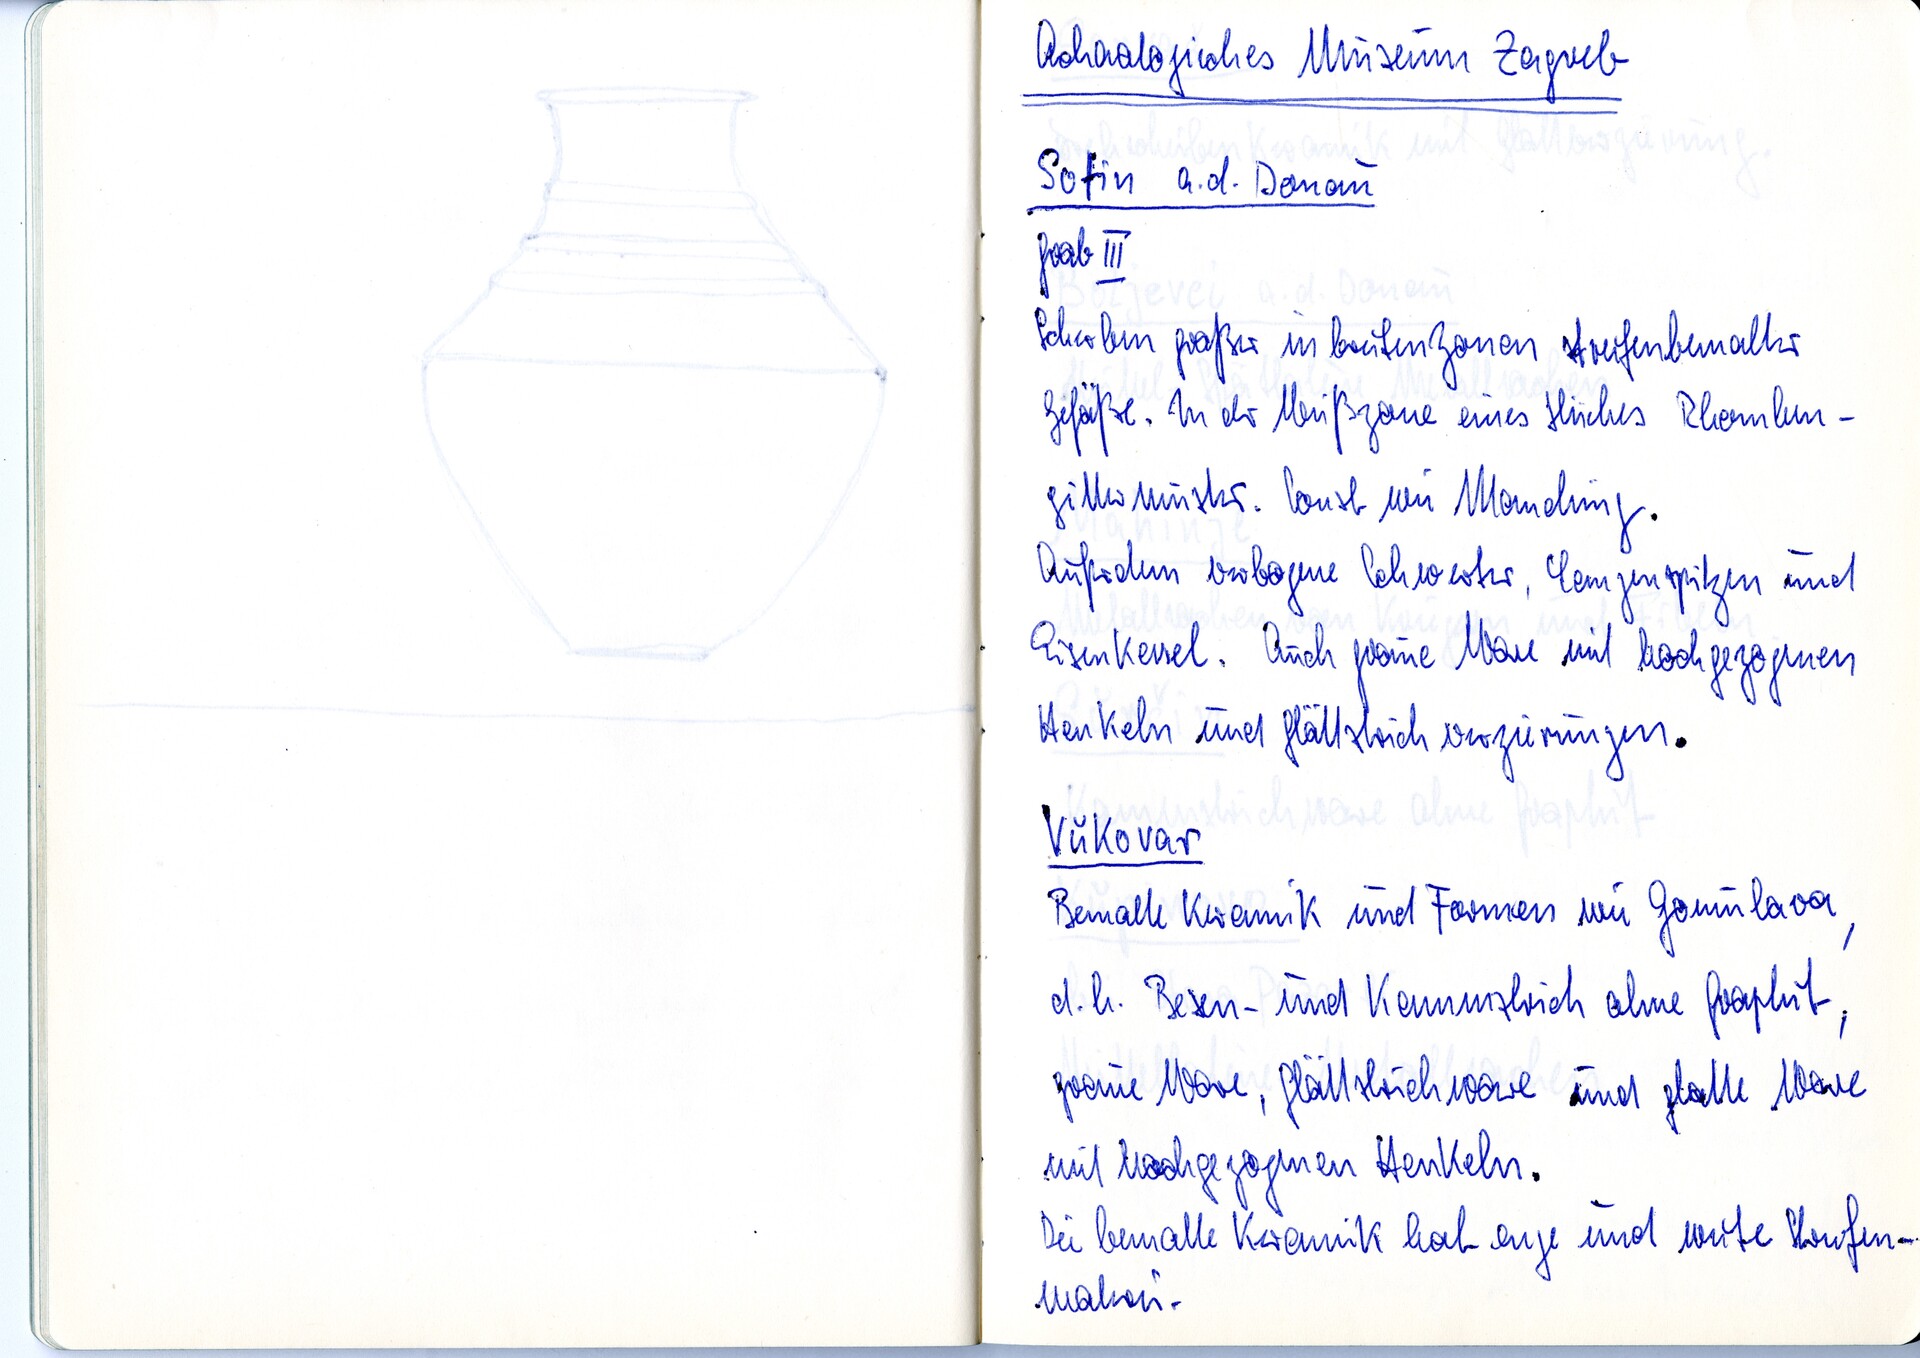 Archäologisches Museum Zagreb
Sotin a.d. Donau
Grab III
Scherben großer in breiten Zonen streifenbemalter
Gefäße. In der Weißzone eines Stückes Rhomben-
gittermuster. Sonst wie Manching.
Außerdem verbogene Schwerter, Lanzenspitzen und
Eisenkessel. Auch graue Ware mit hochgezogenen
Henkeln und Glättstrichverzierungen.
Vukovar
Bemalte Keramik und Formen wie Gomulava,
d.h. Besen- und Kammstrich ohne Graphit,
graue Ware, Glättstrichware und glatte Ware
mit hochgezogenen Henkeln.
Die bemalte Keramik hat enge und weite Streifen-
malerei.